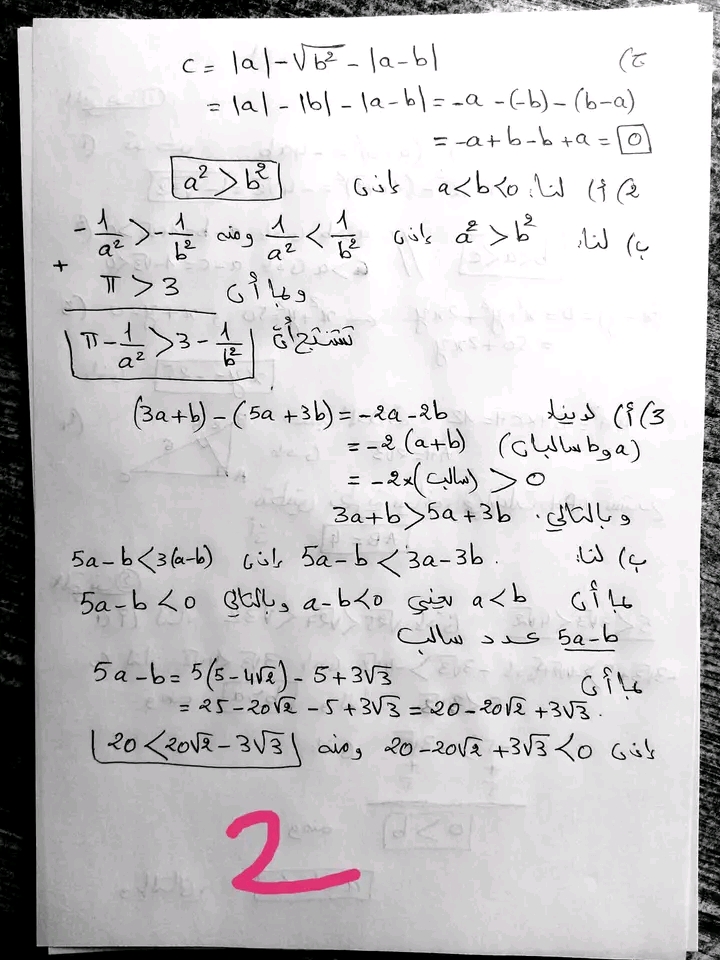 ج) C = |a| - √b² - |a-b|
= |a| - |b| - |a-b| = -a - (-b) - (b-a)
= -a + b - b + a = 0
2) أ) لنا: a<b<0 إذن a² > b²
ب) لنا: a² > b² إذن 1/a² < 1/b² ومنه: -1/a² > -1/b²
وبما أن π > 3 +
نستنتج أن π - 1/a² > 3 - 1/b²
3) أ) لدينا (3a+b) - (5a+3b) = -2a - 2b
= -2 (a+b) (a و b سالبان)
= -2×(سالب) > 0
وبالتالي. 3a+b > 5a+3b
ب) لنا: 5a-b < 3a-3b. إذن 5a-b < 3(a-b)
بما أن a<b يعني a-b<0 وبالتالي 5a-b < 0
5a-b عدد سالب
بما أن 5a-b = 5(5-4√2) - 5 + 3√3
= 25 - 20√2 - 5 + 3√3 = 20 - 20√2 + 3√3.
إذن 20 - 20√2 + 3√3 < 0 ومنه 20 < 20√2 - 3√3
2